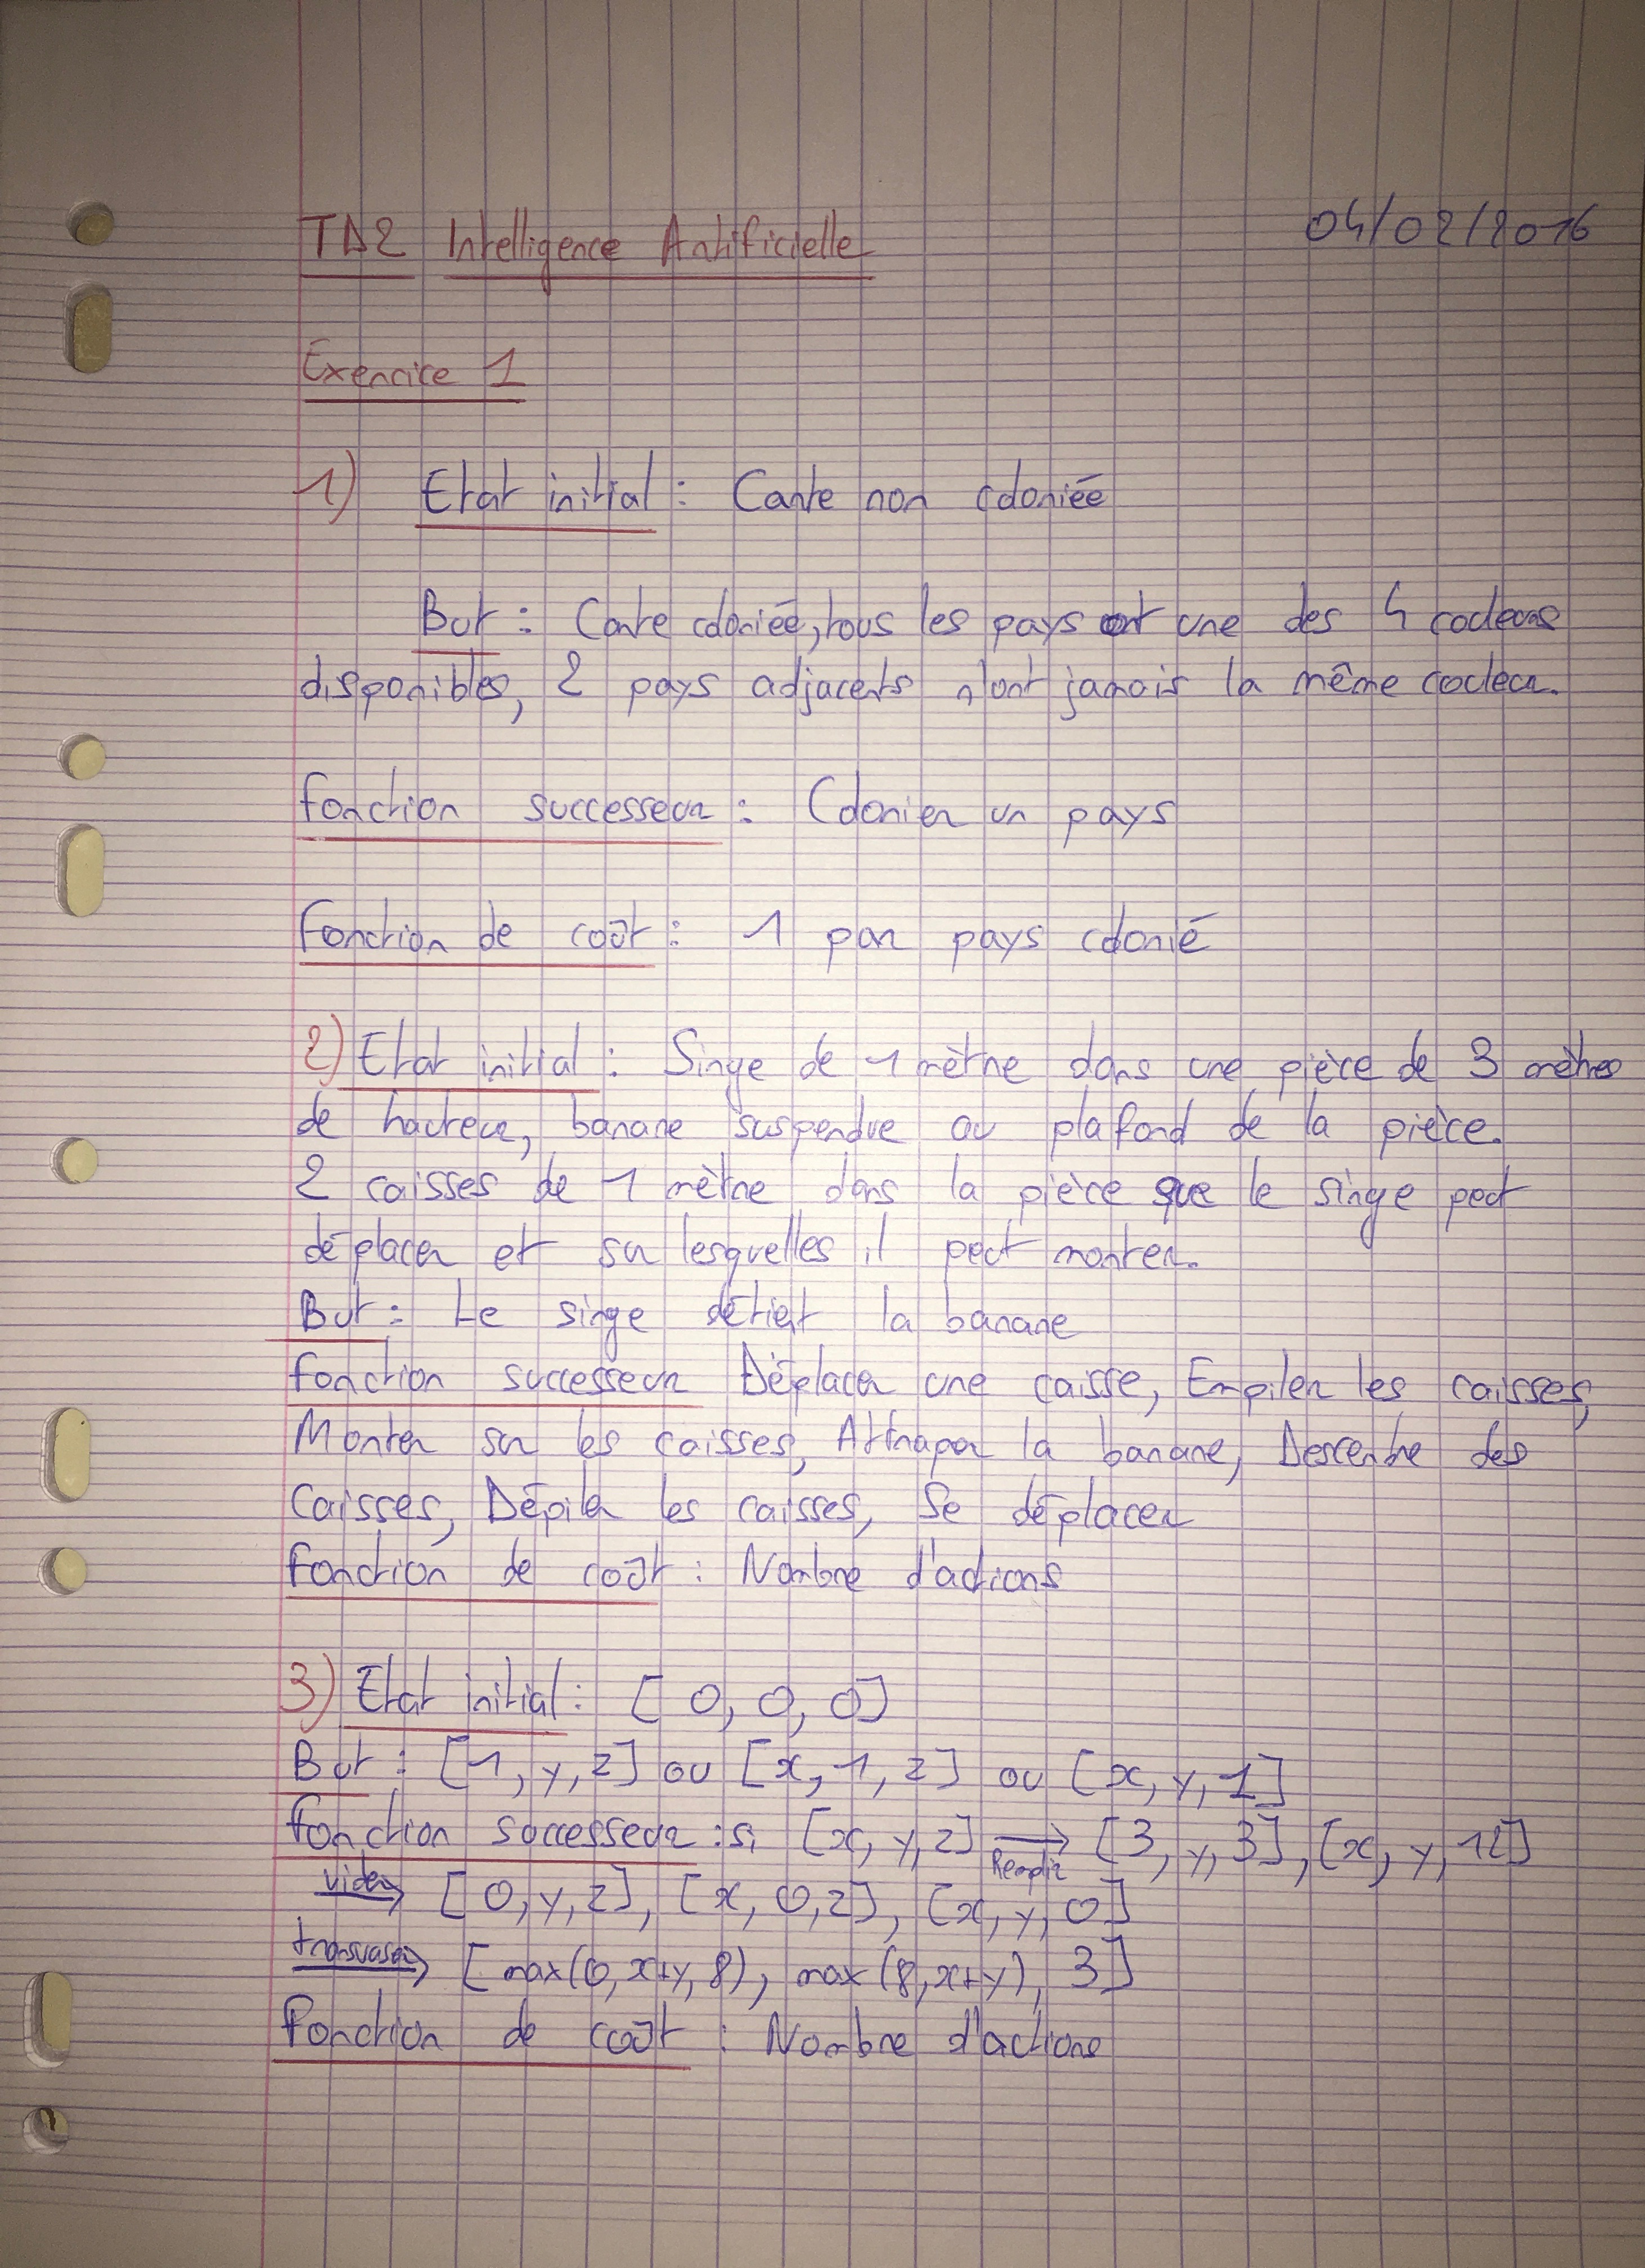 TD2 Intelligence Artificielle 04/02/2016
Exercice 1
1) Etat initial : Carte non coloriée
But : Carte coloriée, tous les pays ont une des 4 couleurs
disponibles, 2 pays adjacents n'ont jamais la même couleur.
Fonction successeur : Colorier un pays
Fonction de coût : 1 par pays colorié
2) Etat initial : Singe de 1 mètre dans une pièce de 3 mètres
de hauteur, banane suspendue au plafond de la pièce.
2 caisses de 1 mètre dans la pièce que le singe peut
déplacer et sur lesquelles il peut monter.
But : Le singe détient la banane
Fonction successeur Déplacer une caisse, Empiler les caisses,
Monter sur les caisses, Attraper la banane, Descendre des
Caisses, Dépiler les caisses, Se déplacer
Fonction de coût : Nombre d'actions
3) Etat initial : [0, 0, 0]
But : [1, y, z] ou [x, 1, z] ou [x, y, 1]
Fonction successeur : si [x, y, z] → Remplir [3, y, 3], [x, y, 12]
vider → [0, y, z], [x, 0, z], [x, y, 0]
transvaser → [max(0, x+y, 8), max(8, x+y), 3]
Fonction de coût : Nombre d'actions